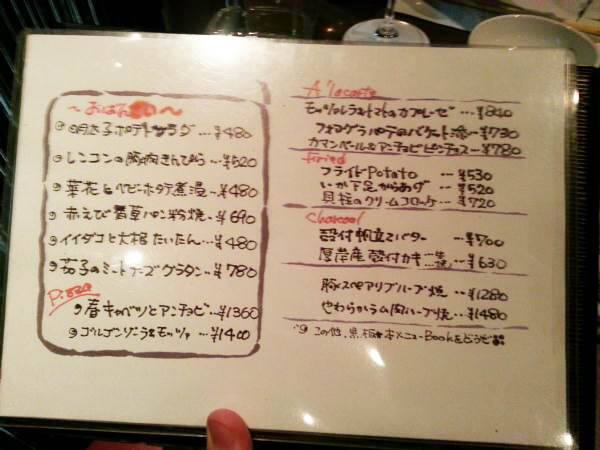 ～おばんざい～
明太子ポテトサラダ…¥480
レンコンの豚肉きんぴら…¥520
菜花とベビーホタテ煮浸…¥480
赤えび香草パン粉焼…¥690
イイダコと大根たいたん…¥480
茄子のミートチーズグラタン…¥780
Pizza
春キャベツとアンチョビ…¥1360
ゴルゴンゾーラ&モッツァ…¥1400
A'lacarte
モッツァレラ&トマトのカプレーゼ…¥840
フォアグラパテのバケット添…¥730
カマンベール&アンチョビピンチョス…¥780
Fried
フライドPotato …¥530
いか下足からあげ …¥520
貝柱のクリームコロッケ …¥720
Charcoal
殻付帆立バター …¥700
厚岸産 殻付カキ…¥630
豚スペアリブハーブ焼…¥1280
やわらかラム肉ハーブ焼…¥1480
この他、黒板&本メニューBookをどうぞ